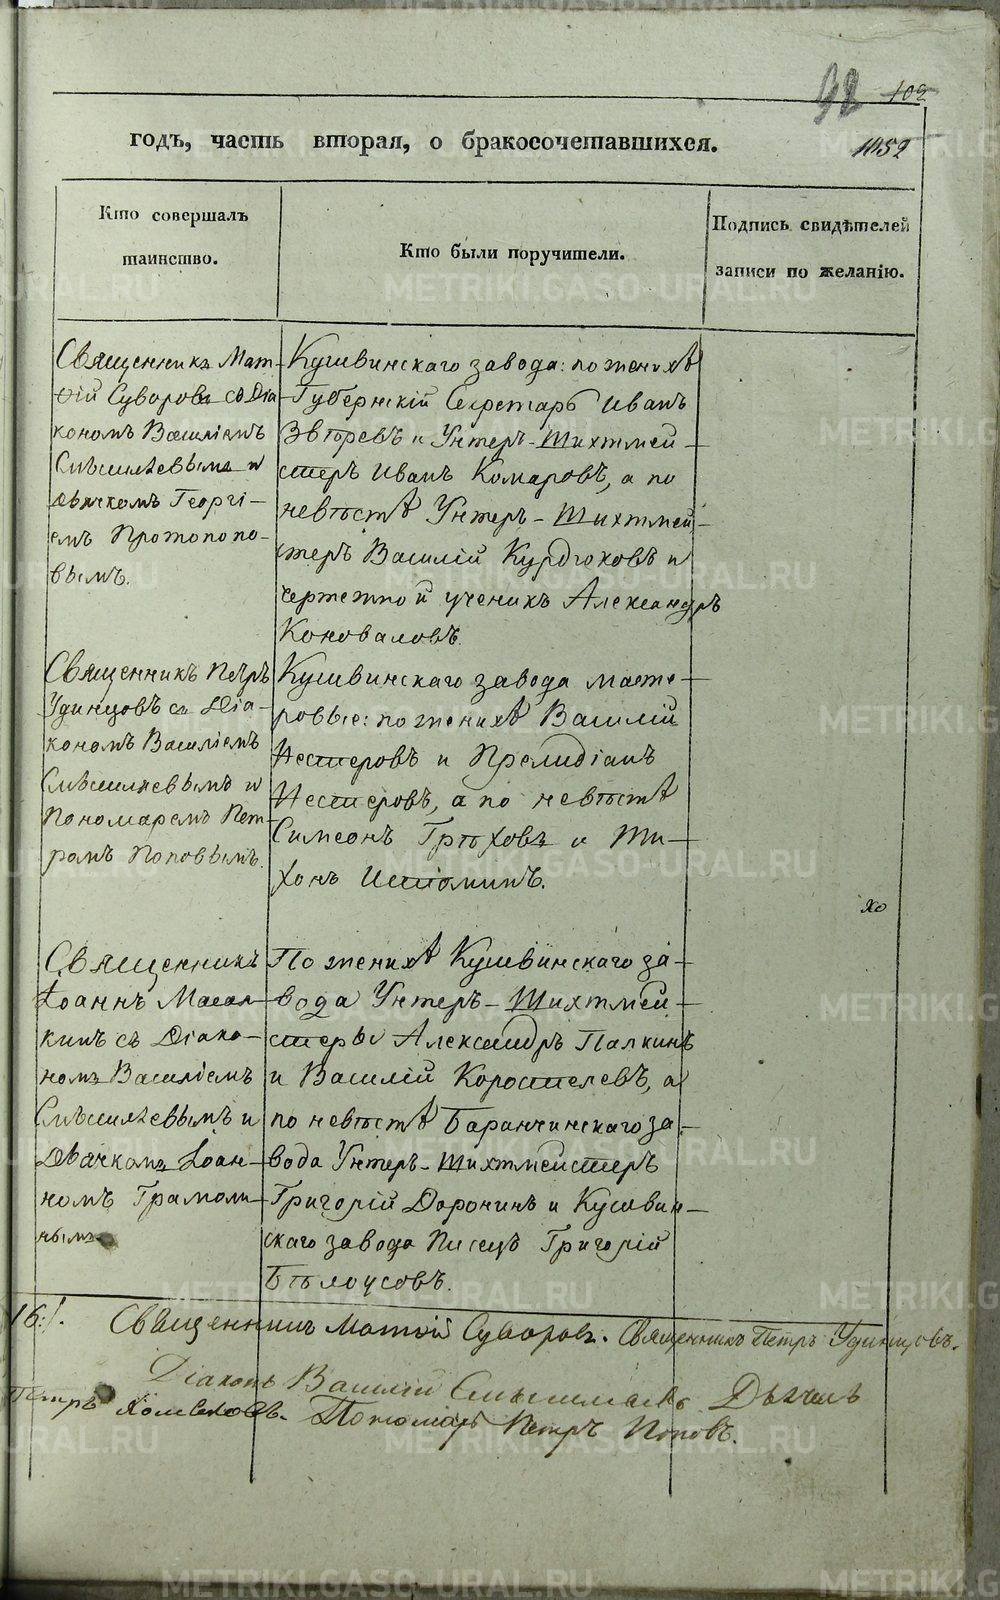 92 102
годъ, часть вторая, о бракосочетавшихся.
1052
Кто совершалъ
таинство.
Кто были поручители.
Подпись свидѣтелей
записи по желанію.
Священникъ Мат-
ѳій Суворовъ съ Діа
кономъ Василіемъ
Смышляевымъ и
дьячкомъ Георгі-
емъ Протопопо-
вымъ.
Кушвинскаго завода: по женихѣ
Губернскій Секретарь Иванъ
и Унтеръ-Шихтмей-
стеръ Иванъ Комаровъ, а по
невѣстѣ Унтеръ-Шихтмей-
стеръ Василій Курдюковъ и
чертежной ученикъ Александръ
Коноваловъ.
Священникъ Петръ
Удинцовъ съ Діа-
кономъ Василіемъ
Смышляевымъ и
Пономаремъ Пет-
ромъ Поповымъ.
Кушвинскаго завода масте-
ровые: по женихѣ Василій
Нестеровъ и Прелидіанъ
Нестеровъ, а по невѣстѣ
Симеонъ Грѣховъ и Ти-
хонъ Истоминъ.
хо
Священникъ
Іоаннъ
кинъ съ Діако-
номъ Василіемъ
Смышляевымъ и
Дьячкомъ Іоан-
номъ Грамоли-
нымъ
По женихѣ Кушвинскаго за-
вода Унтеръ-Шихтмей-
стеры Александръ Палкинъ
и Василій Коростелевъ, а
по невѣстѣ Баранчинскаго за-
вода Унтеръ-Шихтмейстеръ
Григорій Доронинъ и Кушвин-
скаго завода Писецъ Григорій
Бѣлоусовъ.
16.
Священникъ Матѳій Суворовъ. Священникъ Петръ Удинцовъ.
Діаконъ Василій Смышляевъ Дьячекъ
Петръ Пономарь Петръ Поповъ.
METRIKI.GASO-URAL.RU